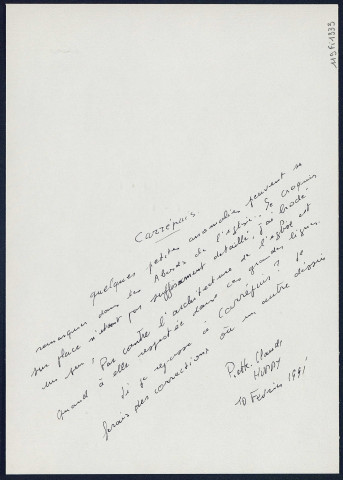 119 Fi 1333
Carrépuis.
Quelques petites anomalies peuvent se
remarquer dans les Abords de l'église. Le croquis
sur place n'étant pas suffisamment détaillé, j'ai brodé
un peu! Par contre l'architecture de l'église est
quand à elle respectée dans ces grandes lignes.
Si je repasse à Carrépuis? Je
ferais des corrections ou un autre dessin
Pierre. Claude
10 Février 1991